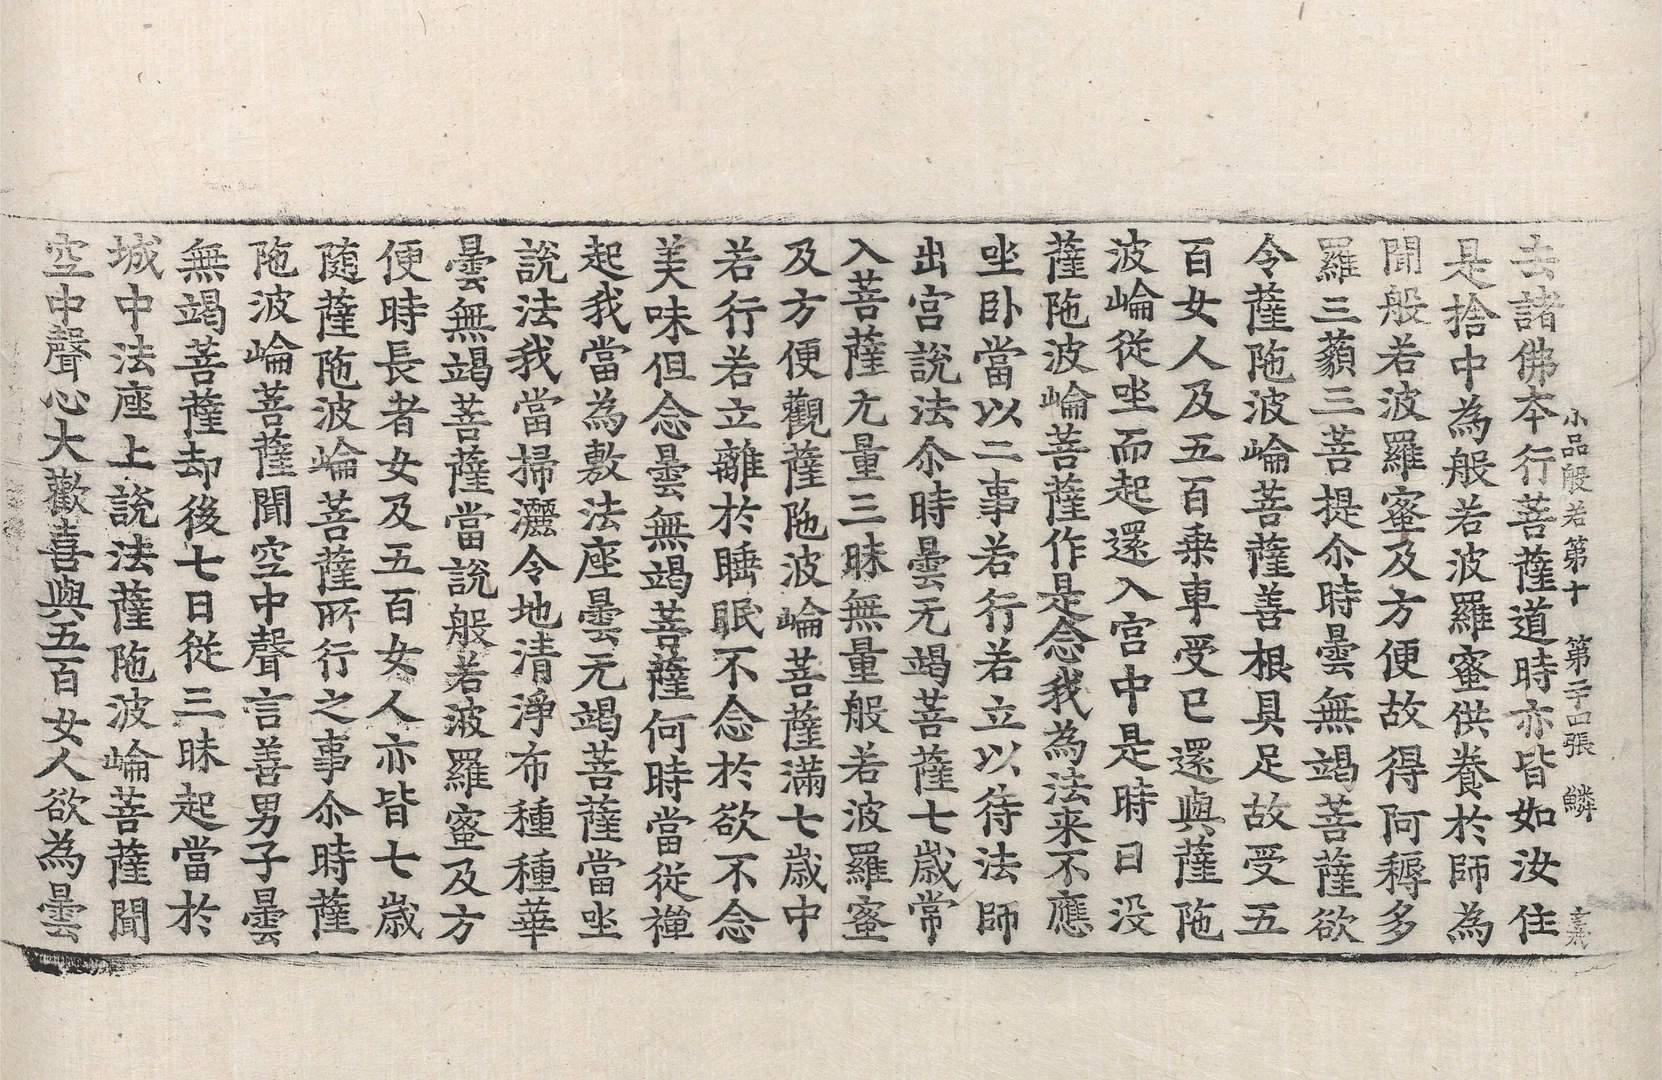 小品般若第十 第二十四張 鱗
去諸佛本行菩薩道時亦皆如汝住
是捨中為般若波羅蜜供養於師為
聞般若波羅蜜及方便故得阿耨多
羅三藐三菩提尒時曇無竭菩薩欲
令薩陁波崘菩薩善根具足故受五
百女人及五百乗車受已還與薩陁
波崘從坐而起還入宮中是時日没
薩陁波崘菩薩作是念我為法来不應
坐卧當以二事若行若立以待法師
出宮說法尒時曇无竭菩薩七歳常
入菩薩无量三昧無量般若波羅蜜
及方便觀薩陁波崘菩薩滿七歳中
若行若立離於睡眠不念於欲不念
美味但念曇無竭菩薩何時當從禪
起我當為敷法座曇无竭菩薩當坐
說法我當掃灑令地清淨布種種華
曇無竭菩薩當說般若波羅蜜及方
便時長者女及五百女人亦皆七歳
随薩陁波崘菩薩所行之事尒時薩
陁波崘菩薩聞空中聲言善男子曇
無竭菩薩却後七日從三昧起當於
城中法座上說法薩陁波崘菩薩聞
空中聲心大歡喜與五百女人欲為曇